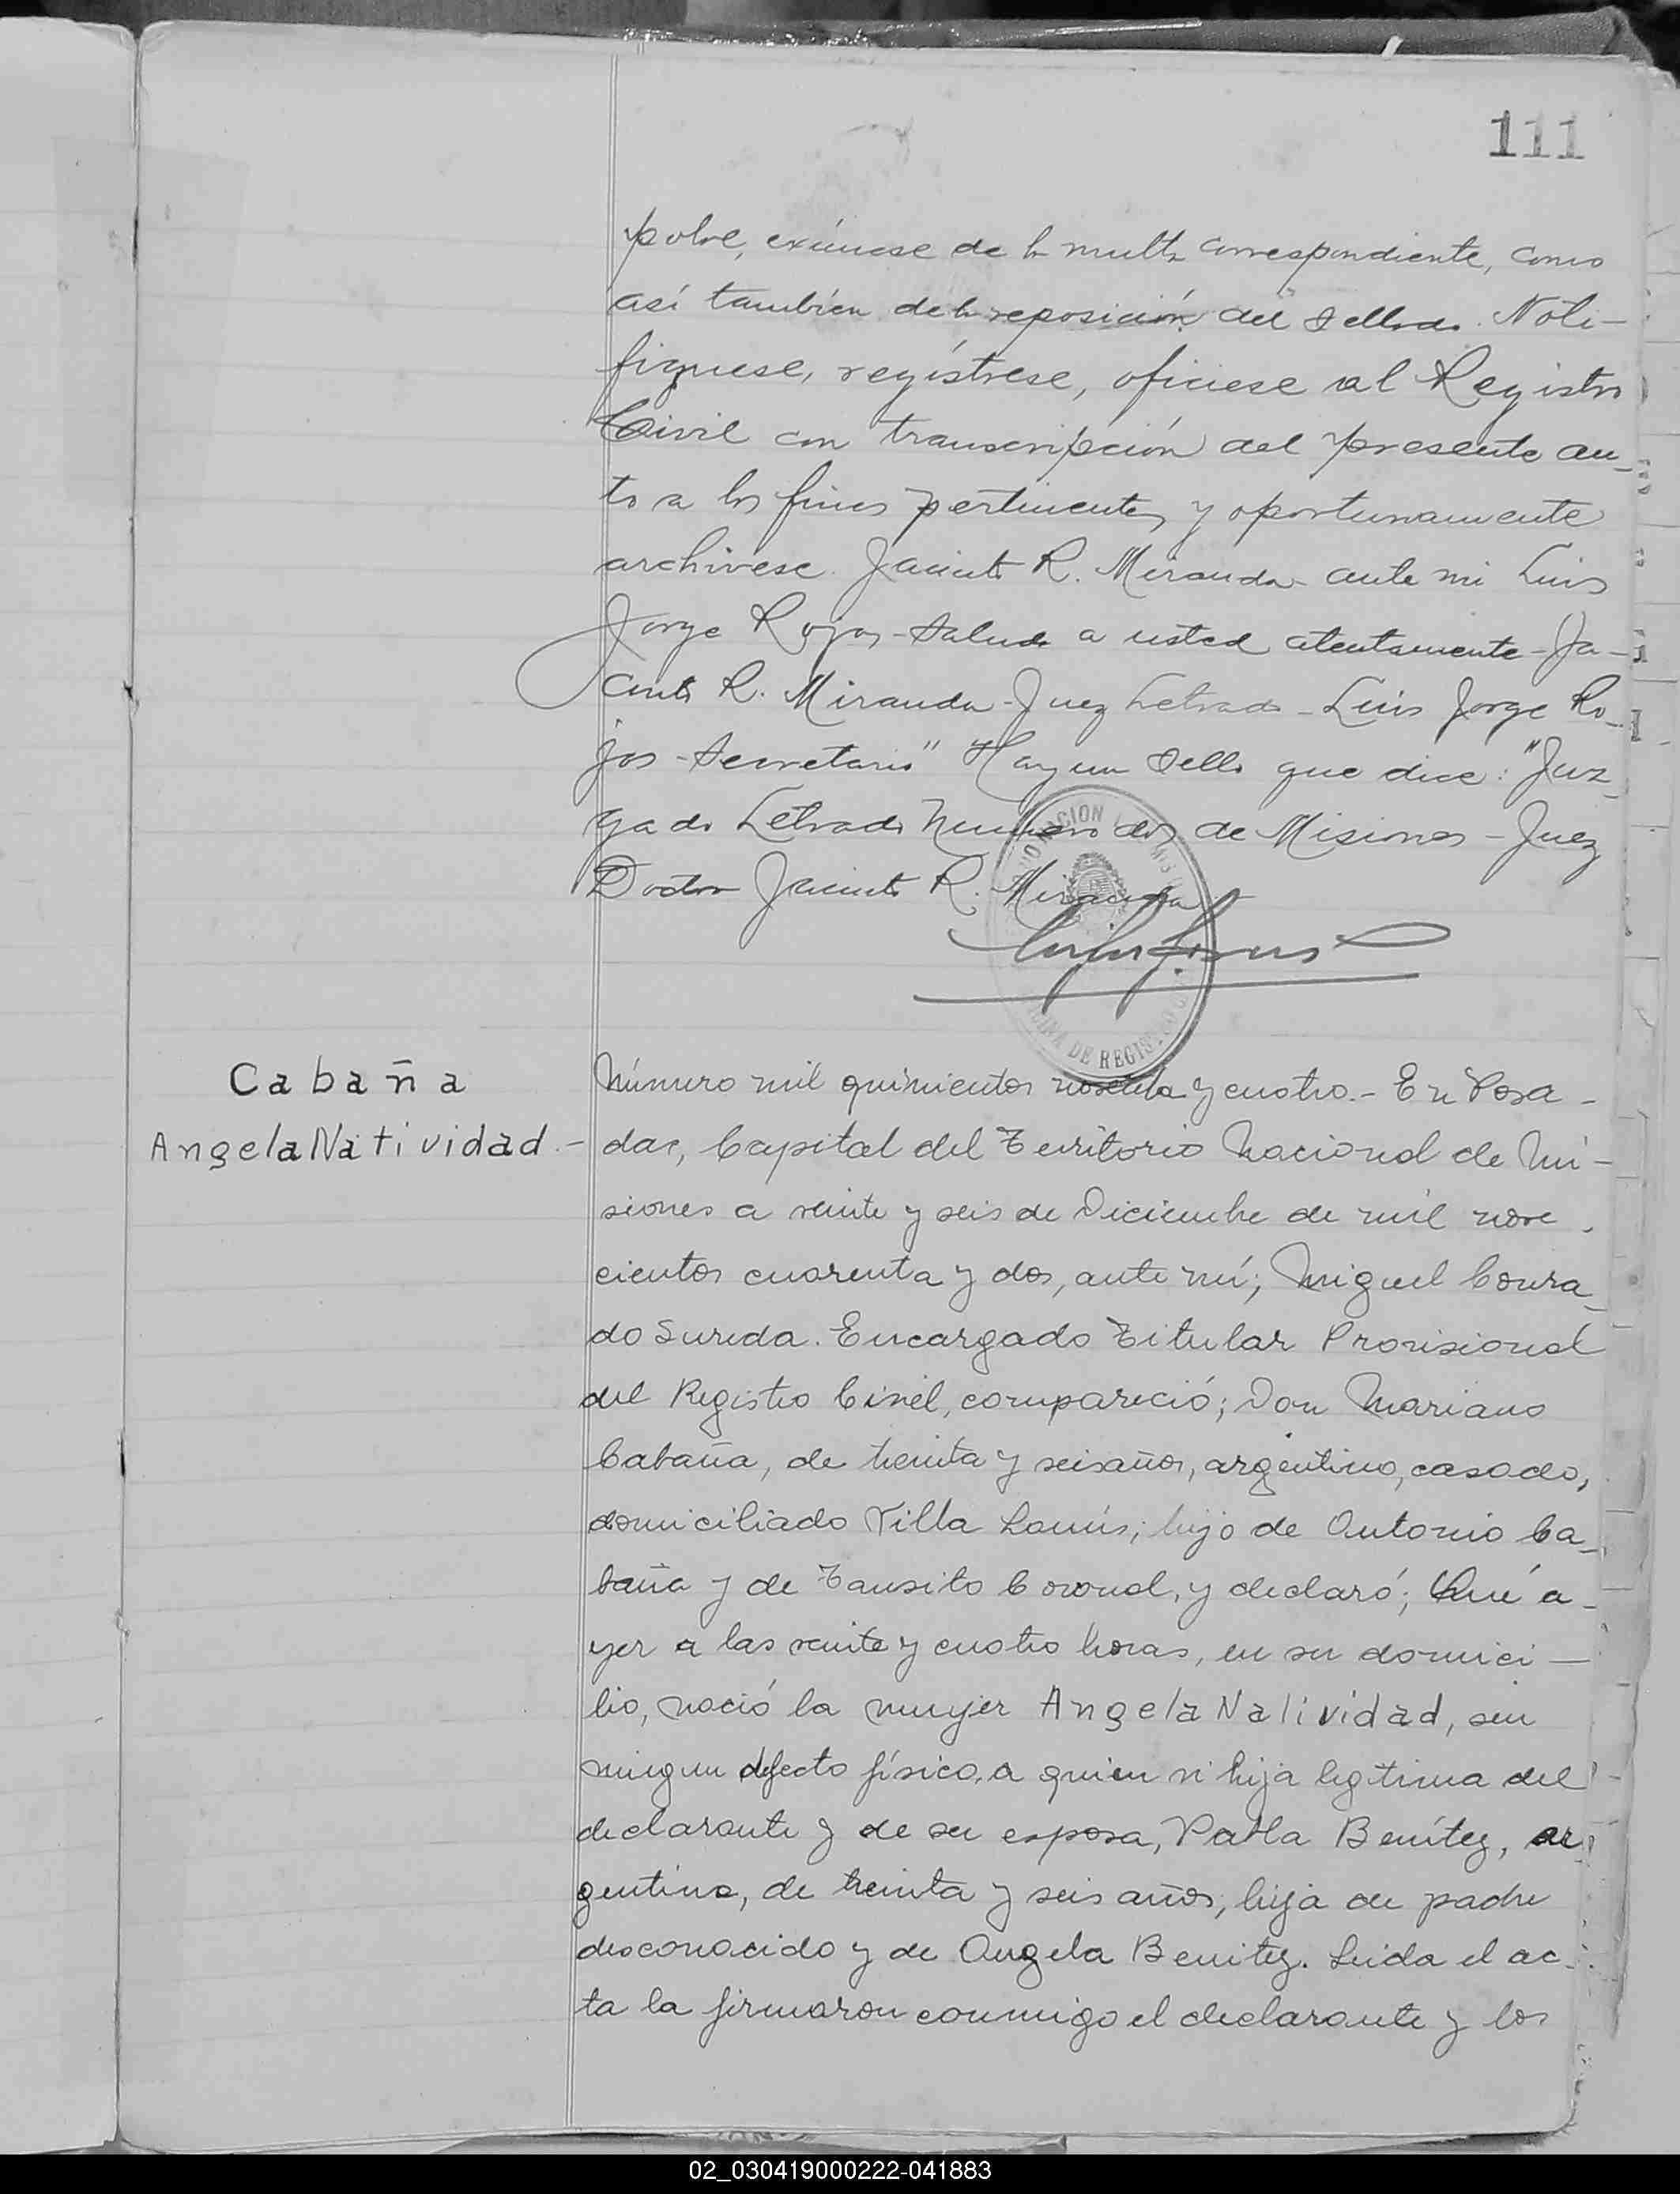 111
pobre, exímese de la multa correspondiente, como
así también de la reposición del sellado. Noti-
fíquese, regístrese, ofíciese al Registro
Civil con transcripción del presente au-
to a los fines pertinentes y oportunamente
archívese. Jacinto R. Miranda - ante mi Luis
Jorge Rojas - Saludo a usted atentamente - Ja-
cinto R. Miranda - Juez Letrado - Luis Jorge Ro-
jas - Secretario" Hay un sello que dice: "Juz-
gado Letrado Numero dos de Misiones - Juez
Doctor Jacinto R. Miranda
Cabaña
Angela Natividad -
Número mil quinientos noventa y cuatro. - En Posa-
das, Capital del Territorio Nacional de Mi-
siones a veinte y seis de Diciembre de mil nove-
cientos cuarenta y dos, ante mí; Miguel Conra-
do Sureda. Encargado Titular Provisional
del Registro Civil, compareció; Don Mariano
Cabaña, de treinta y seis años, argentino, casado,
domiciliado Villa Lanús; hijo de Antonio Ca-
baña y de Tansito Coronel, y declaró; Qué a-
yer a las veinte y cuatro horas, en su domici-
lio, nació la mujer Angela Natividad, sin
ningun defecto físico, a quien vi hija legtima del
declarante y de su esposa, Pabla Benítez, ar-
gentina, de treinta y seis años, hija de padre
desconocido y de Angela Benitez. Leida el ac-
ta la firmaron conmigo el declarante y los
02_030419000222-041883